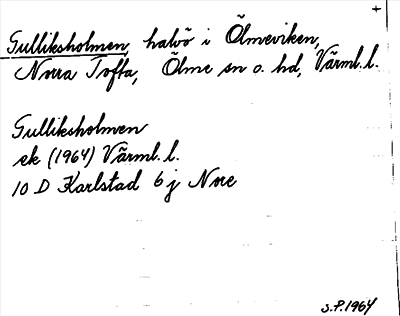 Gulliksholmen, halvö i Ölmeviken,
Norra Tofta, Ölme sn o. hd, Värml. l.
Gulliksholmen
ek (1964) Värml. l.
10 D Karlstad 6 j Nore
S.P. 1964